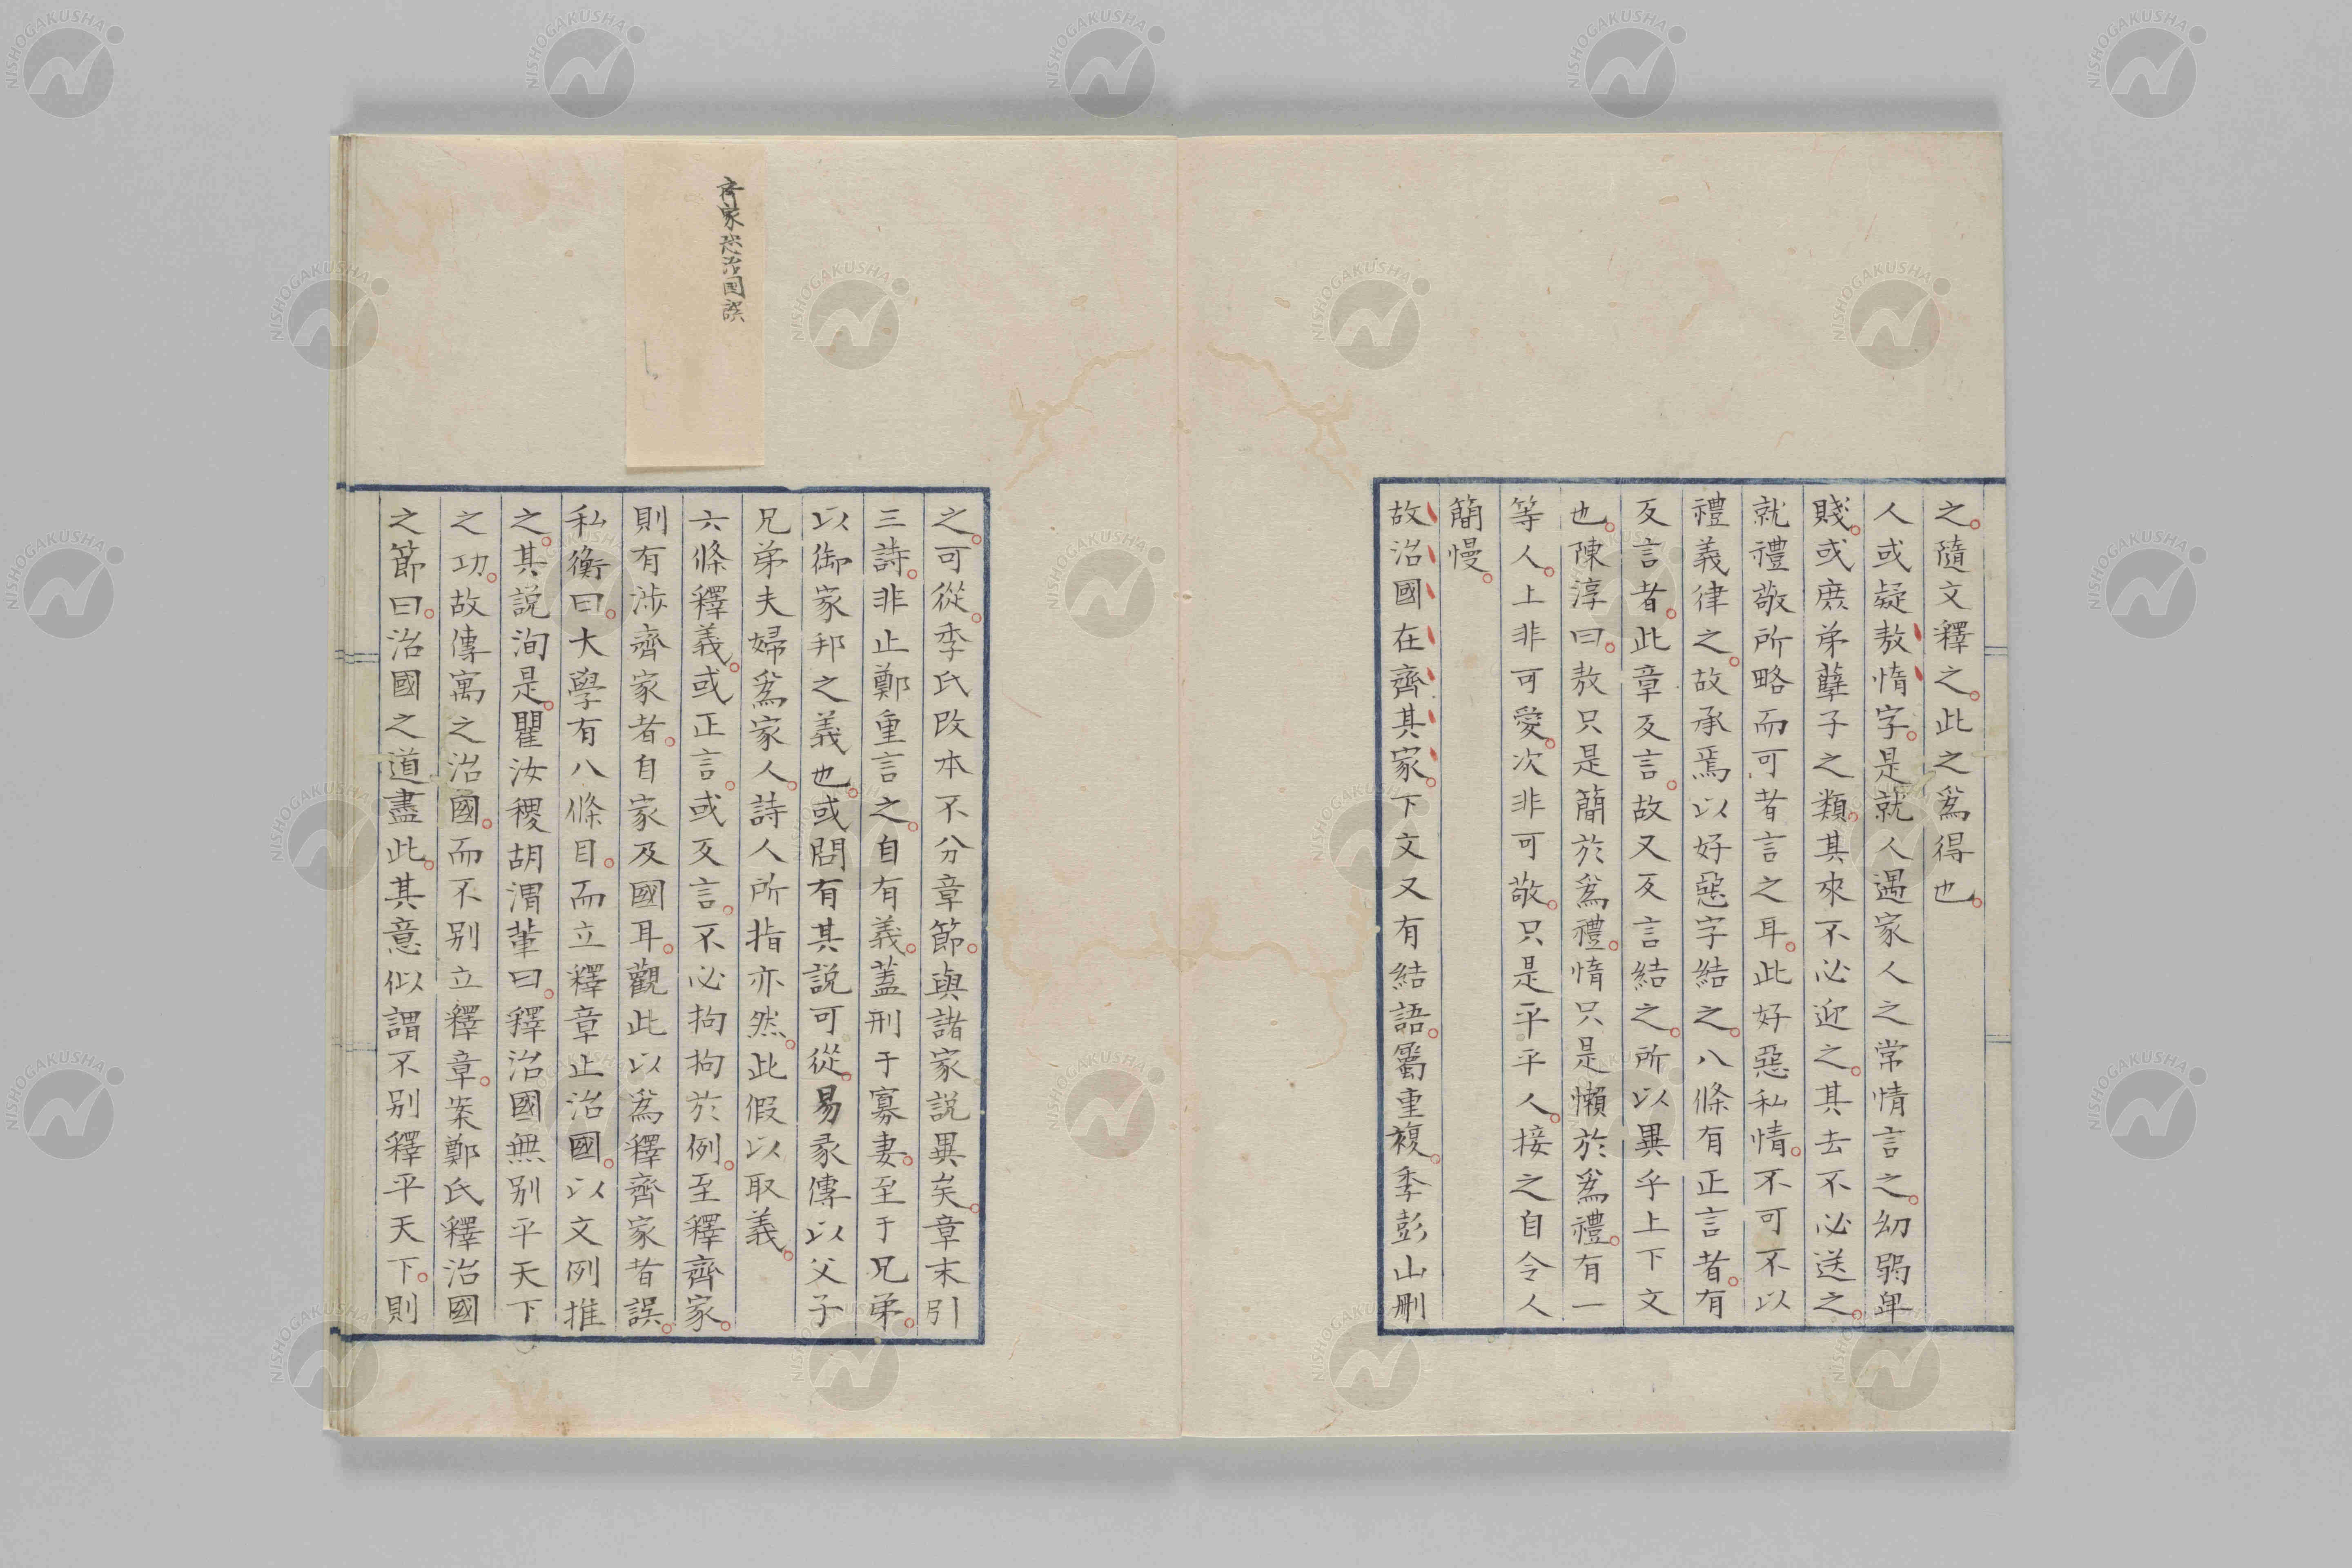 之。隨文釋之。此之爲得也。
人或疑敖惰字。是就人遇家人之常情言之。幼弱卑
賤。或庶弟孽子之類。其來不必迎之。其去不必送之。
就禮敬所略而可者言之耳。此好惡私情。不可不以
禮義律之。故承焉以好惡字結之。八條有正言者。有
反言者。此章反言。故又反言結之。所以異乎上下文
也。陳淳曰。敖只是簡於爲禮。惰只是懶於爲禮。有一
等人。上非可愛。次非可敬。只是平平人。接之自令人
簡慢。
故治國在齊其家。下文又有結語。屬重複。季彭山刪
之。可從。季氏改本不分章節。與諸家說異矣。章末引
三詩。非止鄭重言之。自有義。蓋刑于寡妻。至于兄弟。
以御家邦之義也。或問有其說可從。易彖傳以父子
兄弟夫婦爲家人。詩人所指亦然。此假以取義。
六條釋義。或正言。或反言。不必拘拘於例。至釋齊家。
則有涉齊家者。自家及國耳。觀此以爲釋齊家者誤。
私衡曰。大學有八條目。而立釋章止治國。以文例推
之。其說洵是。瞿汝稷胡渭輩曰。釋治國無別平天下
之功。故傳寓之治國。而不別立釋章。案鄭氏釋治國
之節曰。治國之道盡此。其意似謂不別釋平天下。則
齊家恐治国誤
NISHOGAKUSHA